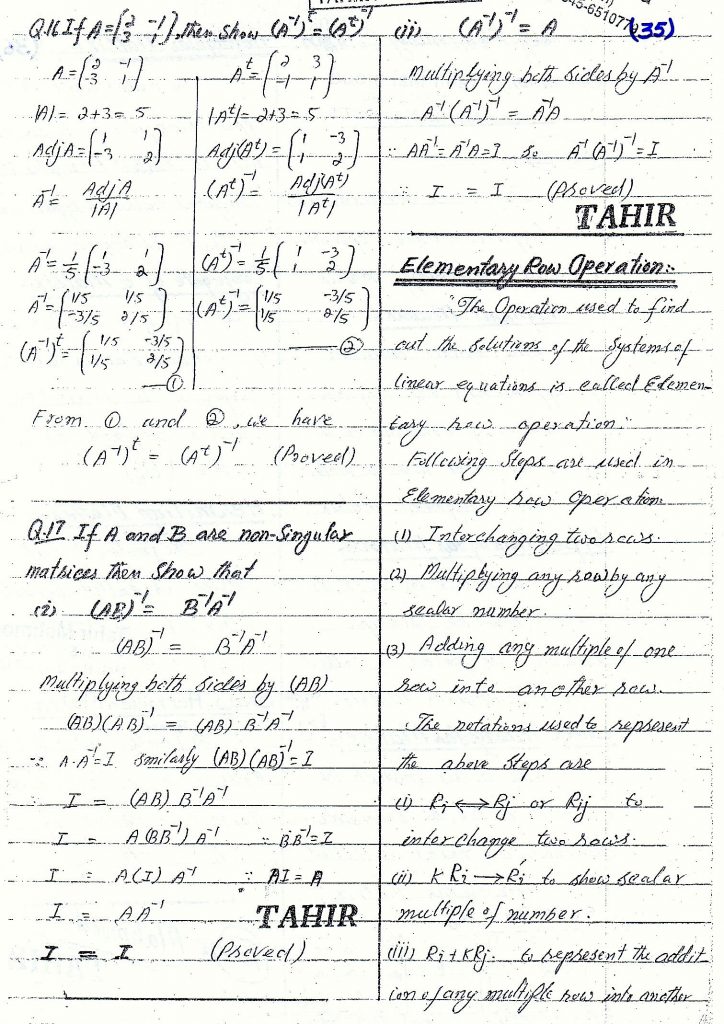 (35)
545-651077
Q.16 If A = [2 -1 / 3 1], then show (A⁻¹)ᵗ = (Aᵗ)⁻¹
A = [2 -1 / -3 1]
|A| = 2+3 = 5
Adj A = [1 1 / -3 2]
A⁻¹ = Adj A / |A|
A⁻¹ = 1/5 [1 1 / -3 2]
A⁻¹ = [1/5 1/5 / -3/5 2/5]
(A⁻¹)ᵗ = [1/5 -3/5 / 1/5 2/5]
—①
Aᵗ = [2 3 / -1 1]
|Aᵗ| = 2+3 = 5
Adj(Aᵗ) = [1 -3 / 1 2]
(Aᵗ)⁻¹ = Adj(Aᵗ) / |Aᵗ|
(Aᵗ)⁻¹ = 1/5 [1 -3 / 1 2]
(Aᵗ)⁻¹ = [1/5 -3/5 / 1/5 2/5]
—②
From ① and ②, we have
(A⁻¹)ᵗ = (Aᵗ)⁻¹ (Proved)
Q.17 If A and B are non-Singular
matrices then Show that
(i) (AB)⁻¹ = B⁻¹A⁻¹
(AB)⁻¹ = B⁻¹A⁻¹
Multiplying both sides by (AB)
(AB)(AB)⁻¹ = (AB) B⁻¹A⁻¹
∵ A·A⁻¹=I similarly (AB)(AB)⁻¹=I
I = (AB) B⁻¹A⁻¹
I = A(BB⁻¹)A⁻¹ ∵ BB⁻¹=I
I = A(I)A⁻¹ ∵ AI=A
I = AA⁻¹ TAHIR
I = I (Proved)
(ii) (A⁻¹)⁻¹ = A
Multiplying both sides by A⁻¹
A⁻¹(A⁻¹)⁻¹ = A⁻¹A
∵ AA⁻¹=A⁻¹A=I so A⁻¹(A⁻¹)⁻¹=I
∵ I = I (Proved)
TAHIR
Elementary Row Operation:-
"The Operation used to find
out the solutions of the Systems of
linear equations is called Elemen-
tary row operation."
Following Steps are used in
Elementary row operation
(1) Interchanging two rows.
(2) Multiplying any row by any
scalar number.
(3) Adding any multiple of one
row into another row.
The notations used to represent
the above steps are
(i) Ri ↔ Rj or Rij to
interchange two rows.
(ii) kRi → R'i to show scalar
multiple of number.
(iii) Ri+kRj to represent the addit
ion of any multiple row into another